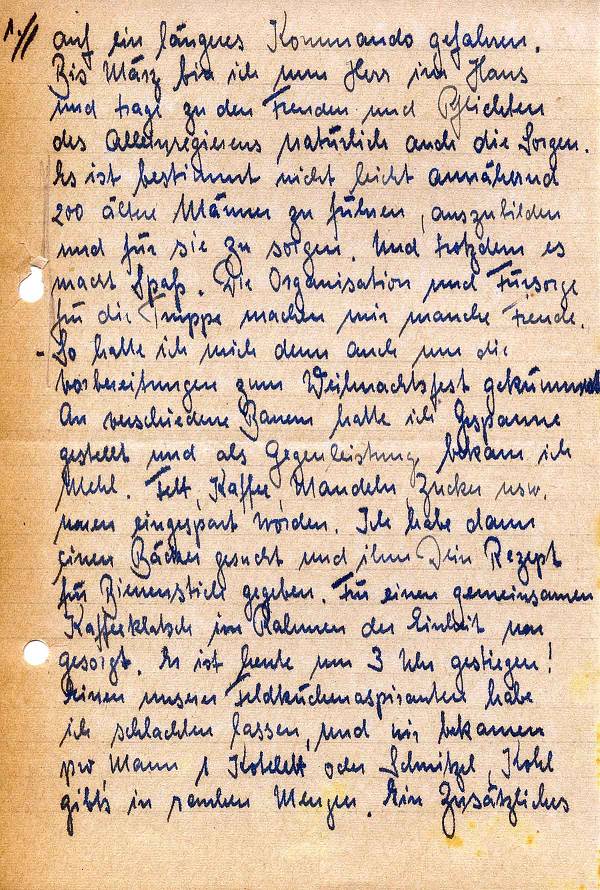 1.//
auf ein längeres Kommando gefahren.
Bis März bin ich nun Herr im Haus
und trage zu den Freuden und Pflichten
des Alleinregierens natürlich auch die Sorgen.
Es ist bestimmt nicht leicht annähernd
200 ältere Männer zu führen, auszubilden
und für sie zu sorgen. Und trotzdem es
macht Spaß. Die Organisation und Fürsorge
für die Truppe machen mir manche Freude.
- So hatte ich mich denn auch um die
Vorbereitungen zum Weihnachtsfest gekümmert
An verschiedene Bauern hatte ich Gespanne
gestellt und als Gegenleistung bekam ich
Mehl. Fett, Kaffee, Mandeln, Zucker usw.
waren eingespart worden. Ich habe dann
einen Bäcker gesucht und ihm Dein Rezept
für Bienenstich gegeben. Für einen gemeinsamen
Kaffeeklatsch im Rahmen der Einheit war
gesorgt. Er ist heute um 3 Uhr gestiegen!
Einen unserer Feldküchenaspiranten habe
ich schlachten lassen, und wir bekamen
pro Mann 1 Kotelett oder Schnitzel, Kohl
gibt's in rauhen Mengen. Ein zusätzliches